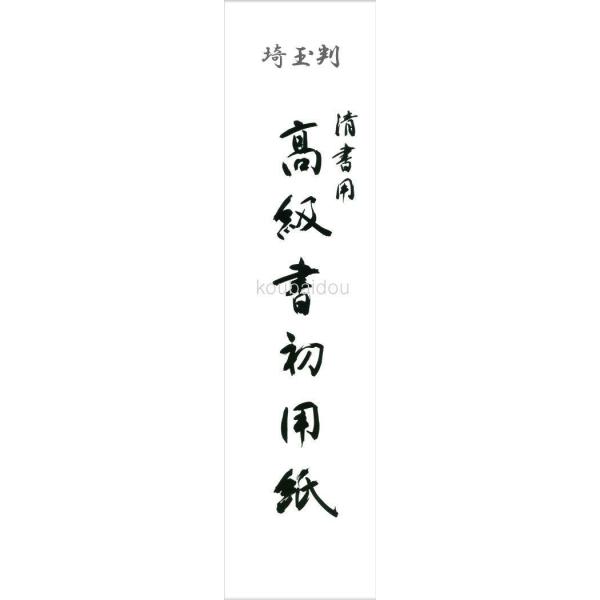 埼玉判
清書用
高級書初用紙
koubaidou